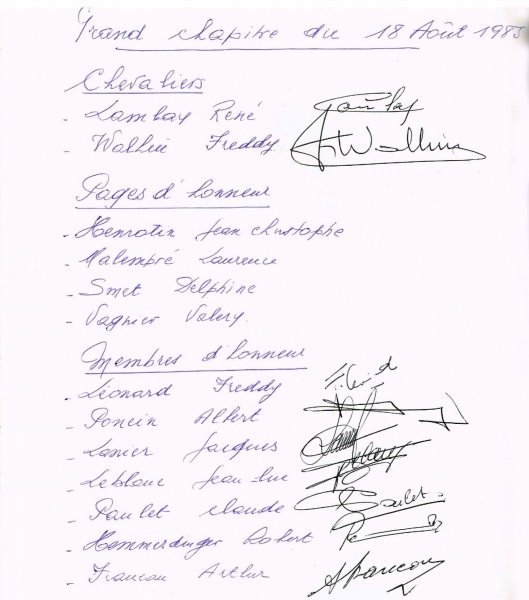 Grand chapitre du 18 Août 1985
Chevaliers
- Lambay René
- Walhin Freddy
Pages d'honneur
- Henrotin Jean christophe
- Malempré Laurence
- Smet Delphine
- Vagnier Valery.
Membres d'honneur
- Léonard Freddy
- Poncin Albert
- Lanier Jacques
- Leblanc Jean-luc
- Paulet claude
- Hemmerdinger Robert
- Francou Arthur